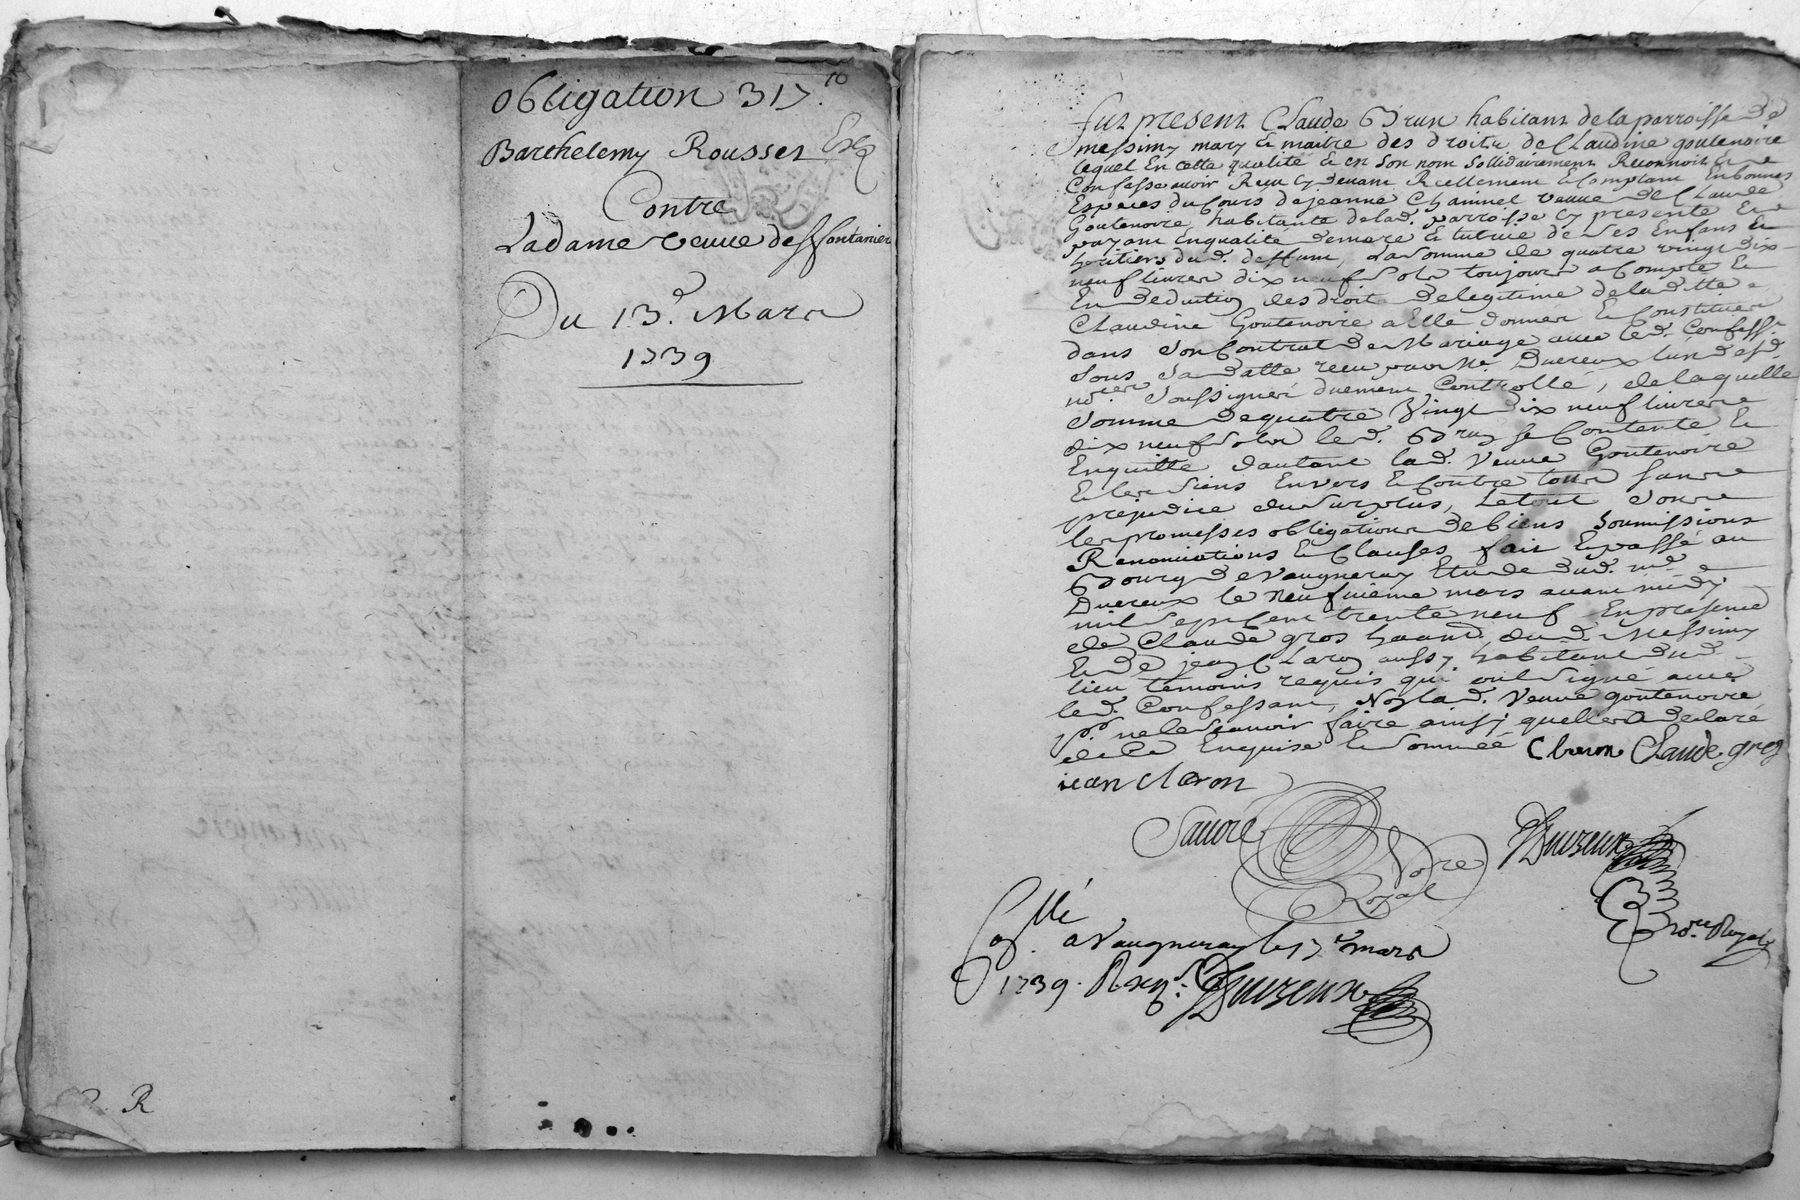 Obligation 317.
Barthelemy Rousset
Contre
La dame veuve desfontanier
Du 13.e Mars
1739
R
Fut present Claude Brun habitant de la parroisse de
messimy mary et maitre des droits de Claudine goutenoire
lequel En cette qualité et en son nom sollidairement Reconnoit et
Confesse avoir Reçu cy devant Reellement et Comptant En bonnes
Especes du Cours de jeanne Chaminel veuve de Claude
Goutenoire habitante de lad. parroisse cy presente et
payant En qualite de mere et tutrice de ses Enfans et
heritiers dud. deffunt, La somme de quatre vingt dix
neuf livres dix neuf sols toujours a Compte et
En deduction des droits de legitime de la ditte
Claudine Goutenoire a Elle donner et Constituer
dans son Contrat de Mariage avec led. Confesst.
sous sa datte recu par Me. Duvreux l'un desd.
nores soussignéz duement Controllé, de laquelle
somme de quatre Vingt dix neuf livres
dix neuf sols led. Brun se Contente et
En quitte d'autant lad. Veuve Goutenoire
et les siens Envers et Contre tous sans
prejudice du surplus, Le tout sous
les promesses obligations de biens soumissions
Renonciations et Clauses fait et passé au
Bourg de Vaugneray Etude dud. me
Duvreux le neufvieme mars avant midy
mil sept cent trente neuf En presence
de Claude gros habitant dud. Messimy
et de jean Claron aussy habitant dud.
lieu temoins requis qui ont signé avec
led. Confessant, Non lad. Veuve goutenoire
pr. ne le scavoir faire ainsy quelle a declaré
de ce Enquise et sommeé C brun Claude gros
jean Claron
Nore
Royal
Duvreux
nore Royal
Collé
a Vaugneray le 17e mars
1739. Duvreux